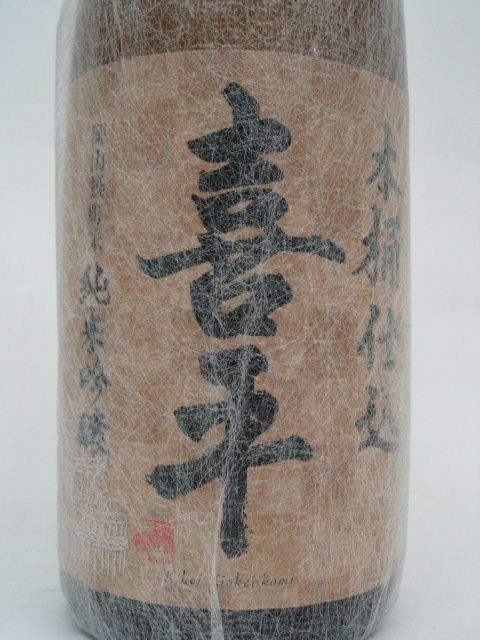 木桶仕込
喜平
純米吟醸
Kihei Kiokejikomi